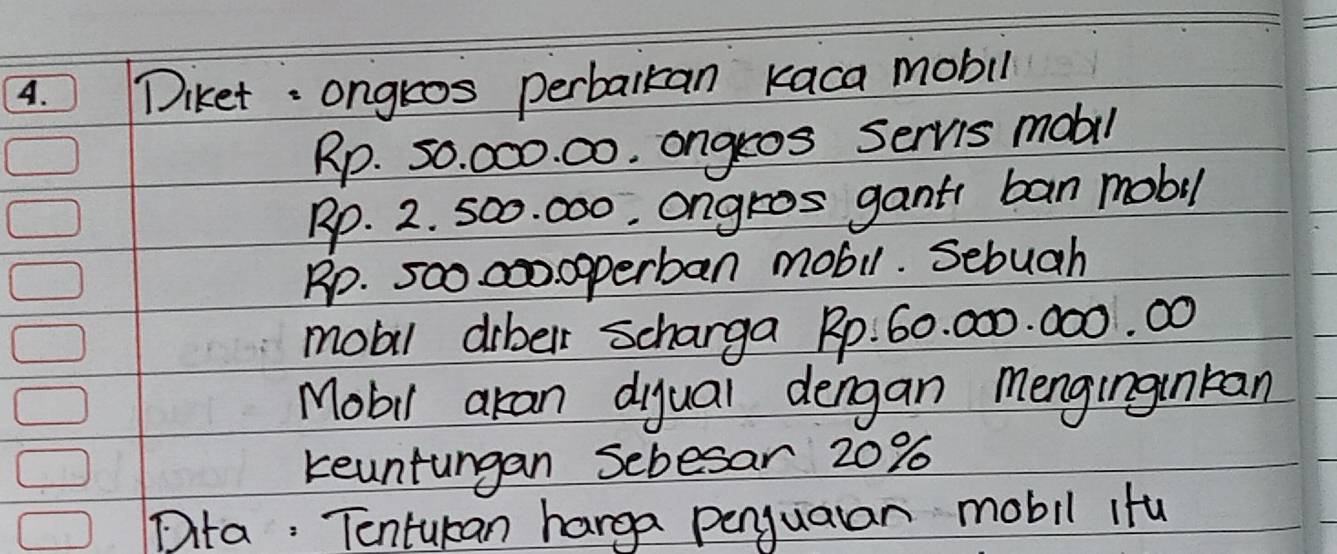 4. Diket : ongkos perbaikan kaca mobil
Rp. 50.000.00. ongkos servis mobil
Rp. 2.500.000. ongkos ganti ban mobil
Rp. 500.000.00 perban mobil. Sebuah
mobil dibeli seharga Rp. 60.000.000.00
Mobil akan dijual dengan menginginkan
keuntungan sebesar 20%
Dita : Tentukan harga penjualan mobil itu